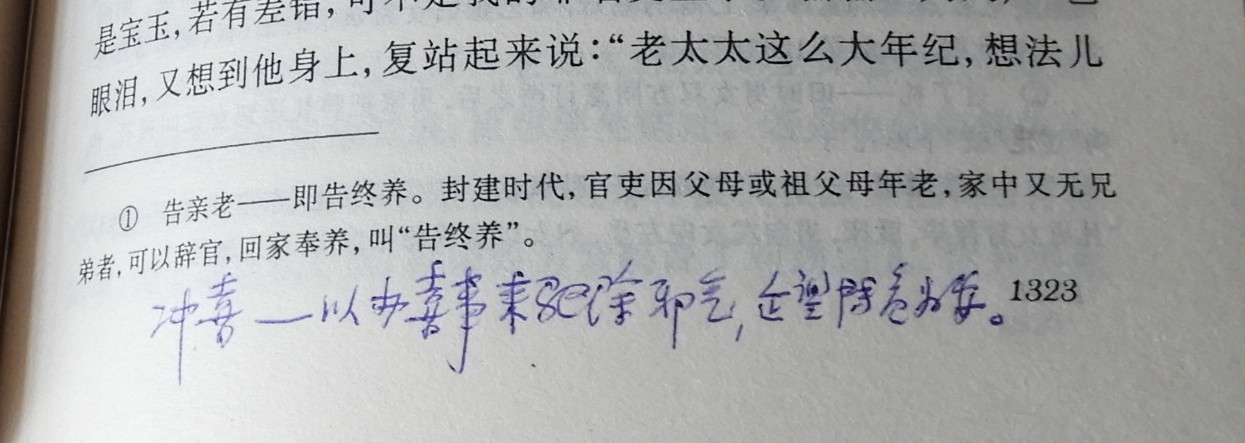 是宝玉,若有差错,可不是我的
眼泪,又想到他身上,复站起来说:“老太太这么大年纪,想法儿
① 告亲老——即告终养。封建时代,官吏因父母或祖父母年老,家中又无兄
弟者,可以辞官,回家奉养,叫“告终养”。
冲喜—以办喜事来驱除邪气,企望转危为安。
1323